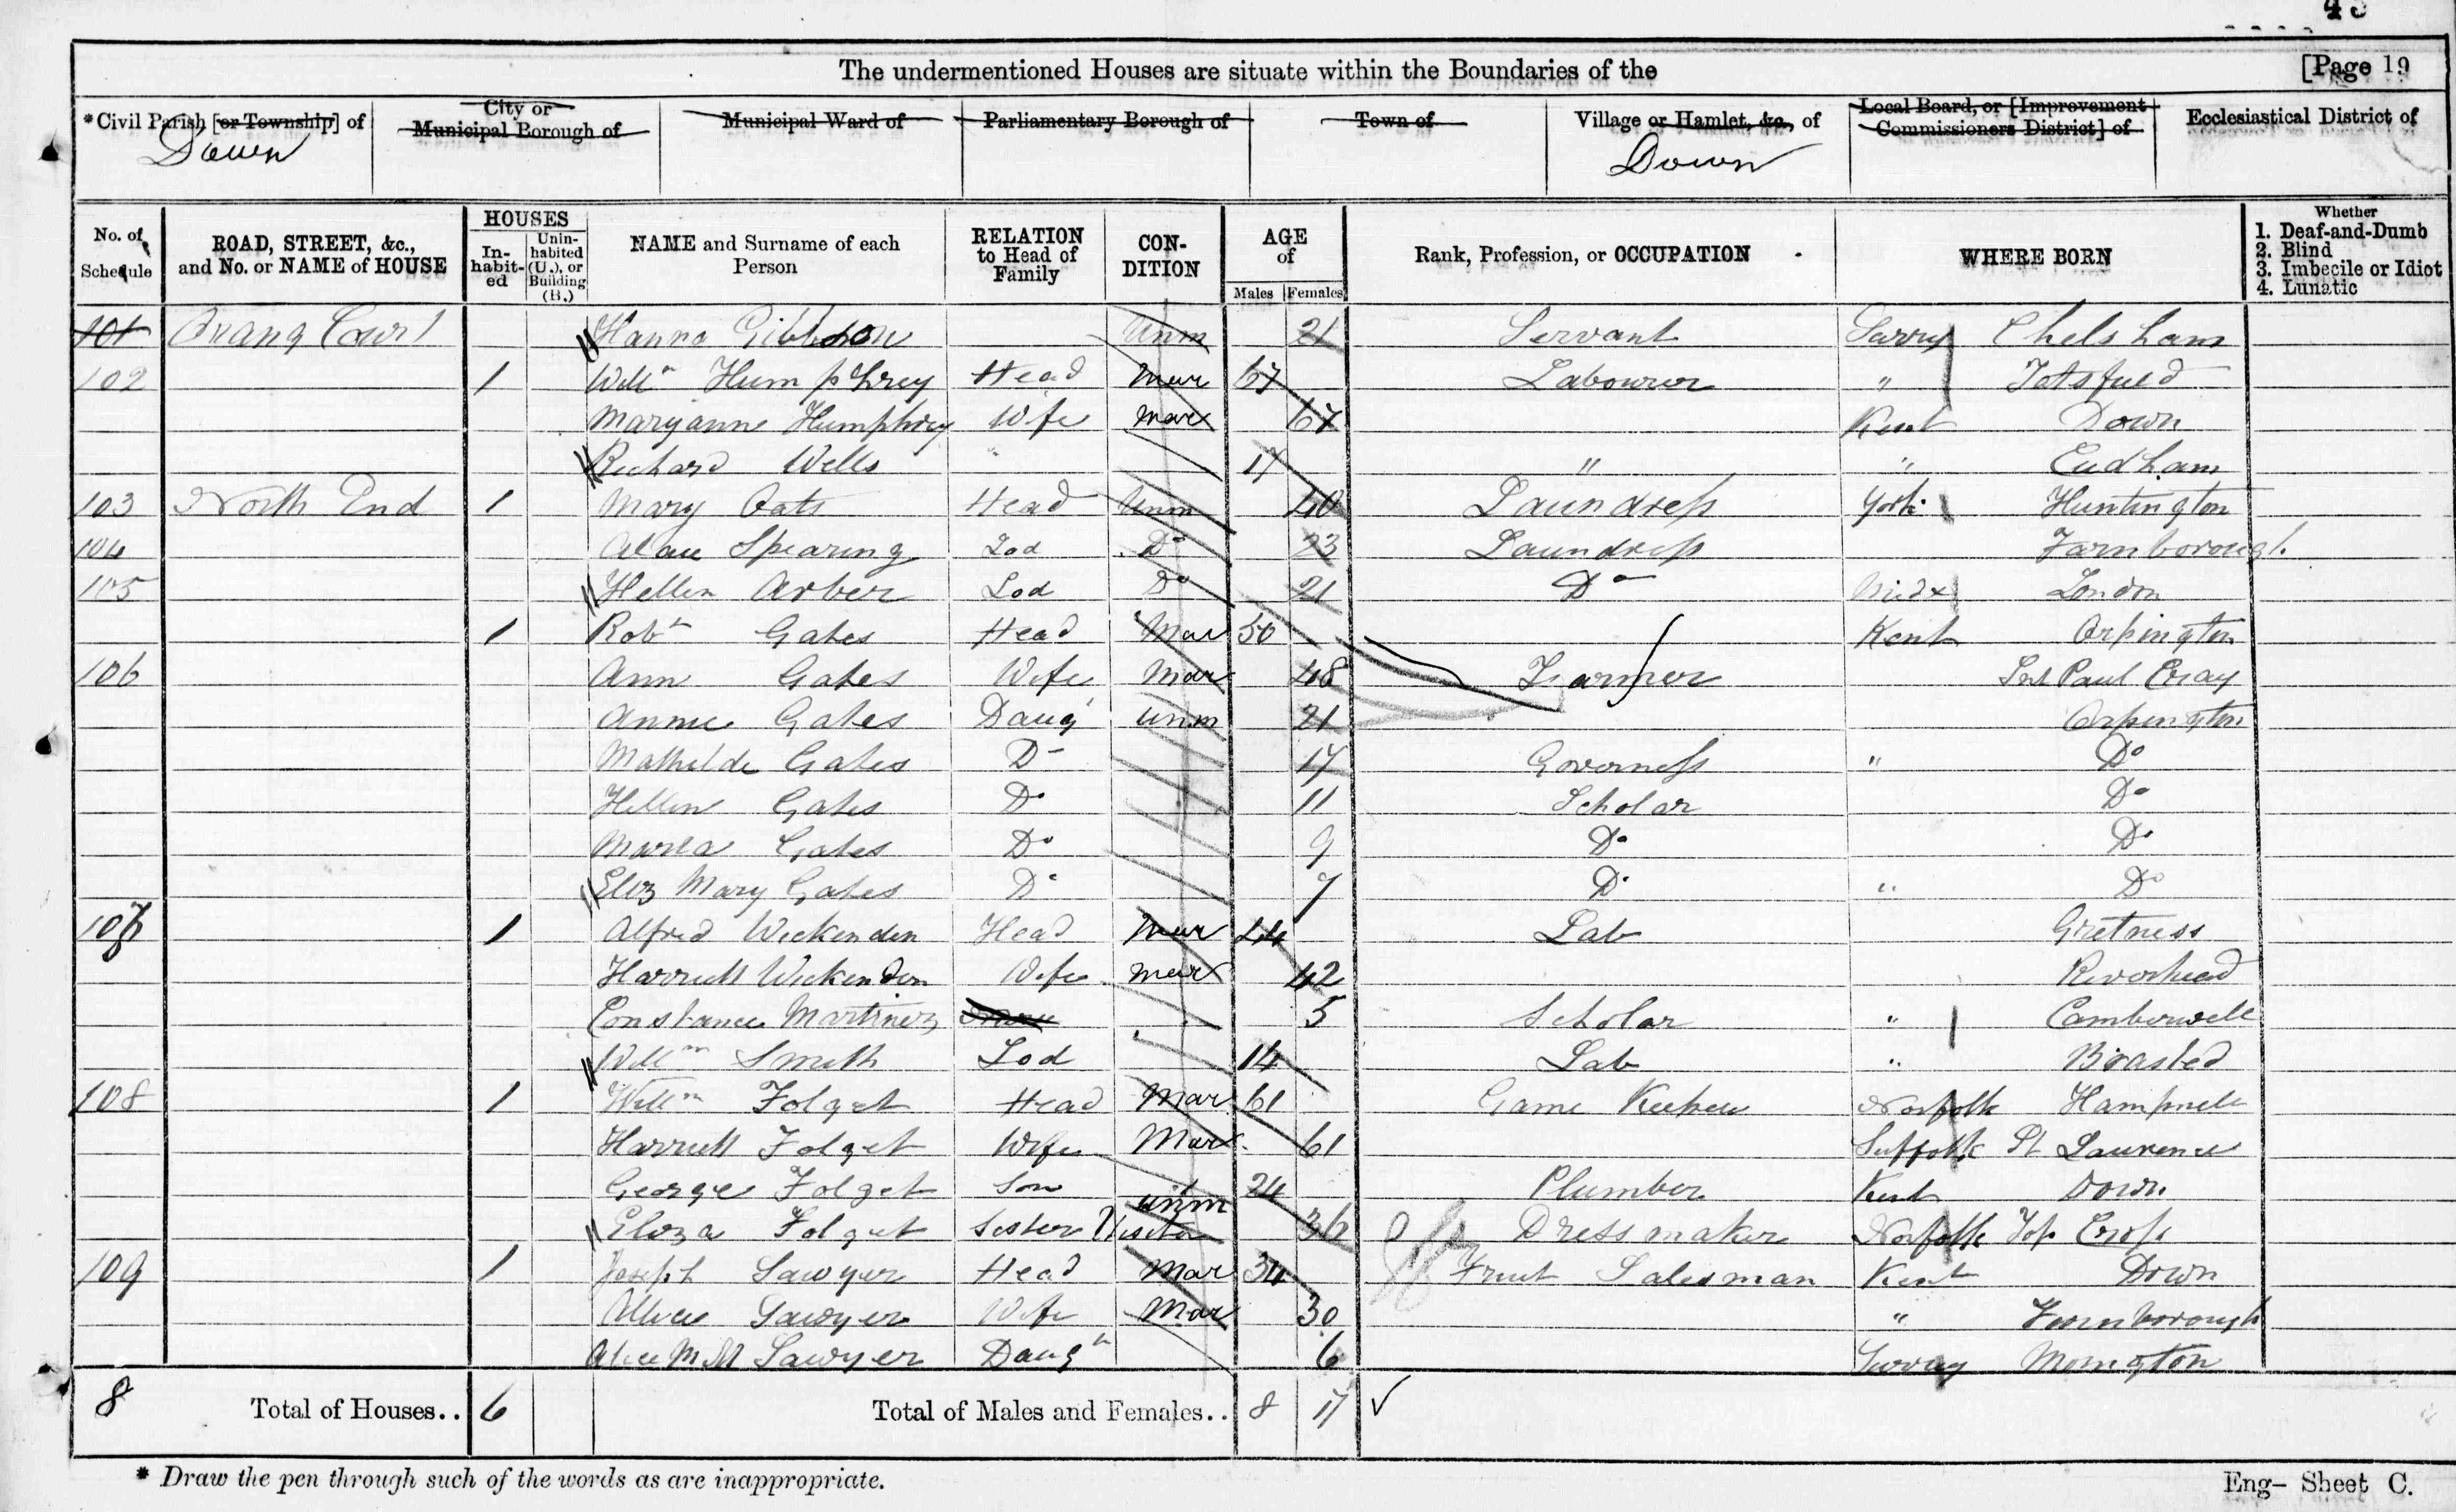 The undermentioned Houses are situate within the Boundaries of the
[Page 19
*Civil Parish [or Township] of Down
City or Municipal Borough of
Municipal Ward of
Parliamentary Borough of
Town of
Village or Hamlet, &c., of Down
Local Board, or [Improvement Commissioners District] of
Ecclesiastical District of
No. of Schedule
ROAD, STREET, &c., and No. or NAME of HOUSE
HOUSES
In-habit-ed
Unin-habited (U.), or Building (B.)
NAME and Surname of each Person
RELATION to Head of Family
CON-DITION
AGE of
Males Females
Rank, Profession, or OCCUPATION
WHERE BORN
Whether
1. Deaf-and-Dumb
2. Blind
3. Imbecile or Idiot
4. Lunatic
101 Orang Court Hanna Unm 21 Servant Surry Chelsham
102 1 Willm Humphrey Head Mar 67 Labourer " Tatsfield
Maryann Humphrey Wife Mar 67 Kent Down
Richard Wells " 17 " " Cudham
103 North End 1 Mary Oats Head Unm 40 Laundress York Huntington
104 Spearing Lod Do 23 Laundress Farnborough
105 Hellen Arber Lod Do 21 Do Midx London
1 Robt Gates Head Mar 50 Kent Orpington
106 Ann Gates Wife Mar 48 Farmer Snt Paul Cray
Annie Gates Daug unm 21 Orpington
Mathilde Gates Do 17 Governess " Do
Hellen Gates Do 11 Scholar Do
Marta Gates Do 9 Do Do
Eliz Mary Gates Do 7 Do " Do
107 1 Alfred Wickenden Head Mar 44 Lab Gretness
Harriett Wickenden Wife Mar 42 Riverhead
Constance Martinez 5 Scholar " Camberwell
Willm Smith Lod 14 Lab " Brasted
108 1 Willm Folget Head Mar 61 Game Keeper Norfolk Hampnell
Harriett Folget Wife Mar 61 Suffolk St Laurence
George Folget Son unm 24 Plumber Kent Down
Eliza Folget Sister Visitor 36 Dressmaker Norfolk Top Croft
109 1 Joseph Sawyer Head Mar 34 Fruit Salesman Kent Down
Alice Sawyer Wife Mar 30 " Farnborough
Alice M M Sawyer Daugh 6 Surrey
8 Total of Houses.. 6 Total of Males and Females.. 8 17
* Draw the pen through such of the words as are inappropriate.
Eng- Sheet C.